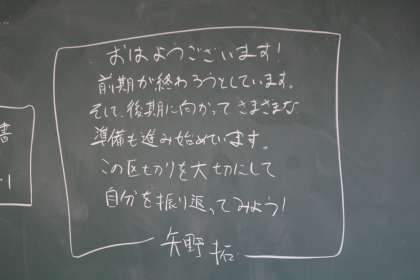 おはようございます!
前期が終わろうとしています。
そして、後期に向かってさまざまな
準備も進み始めています。
この区切りを大切にして
自分を振り返ってみよう!
矢野 拓
書